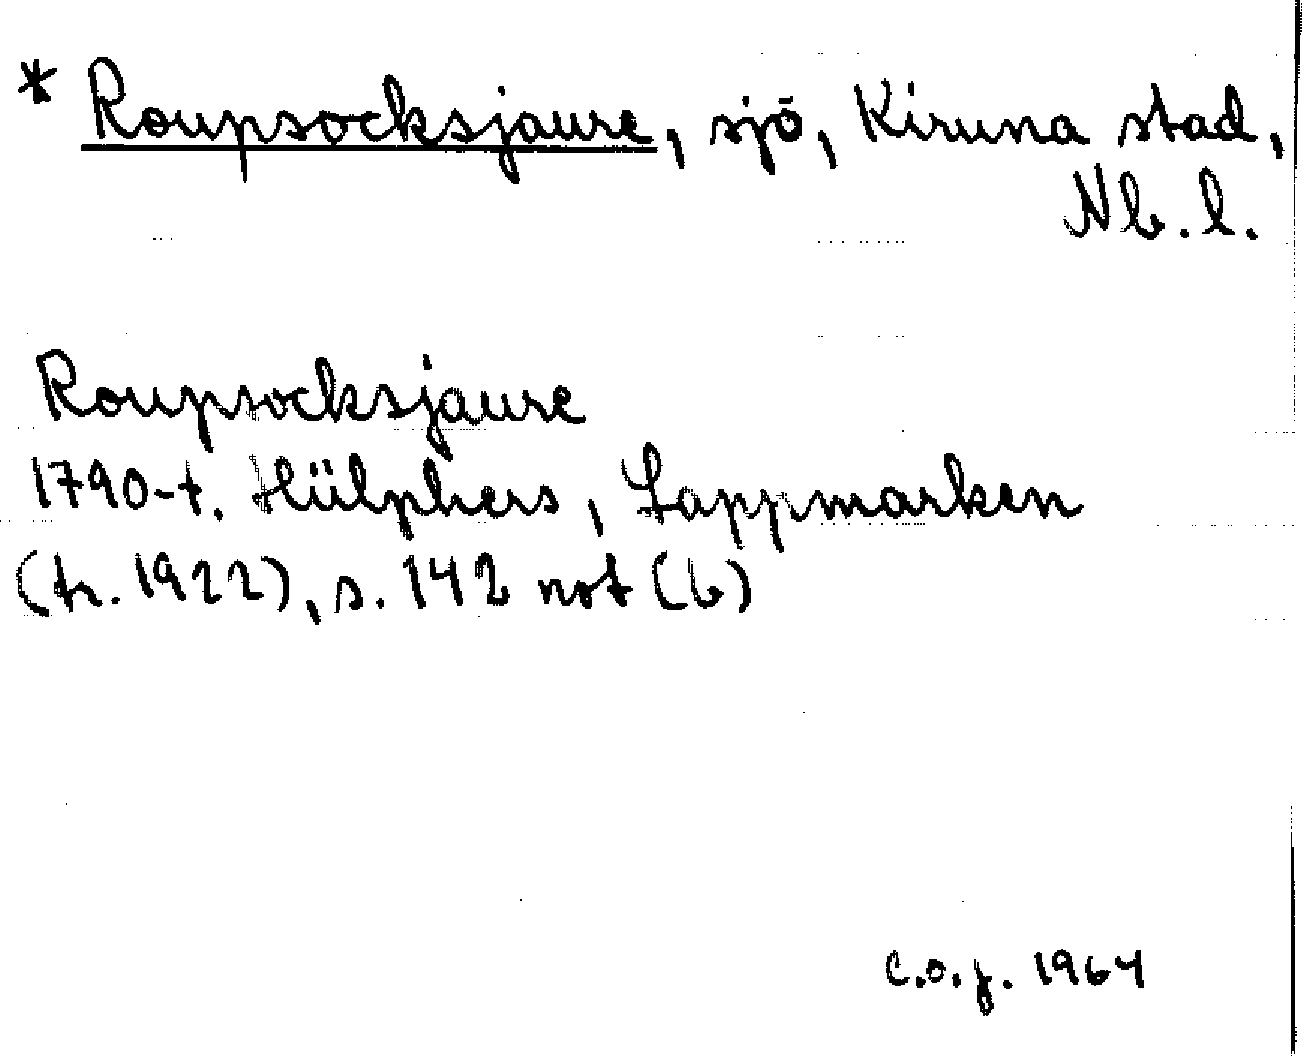 * Roupsocksjaure, sjö, Kiruna stad,
Nb. l.
Roupsocksjaure
1790-t. Hülphers, Lappmarken
(tr. 1922), s. 142 not (b)
C.O.J. 1964